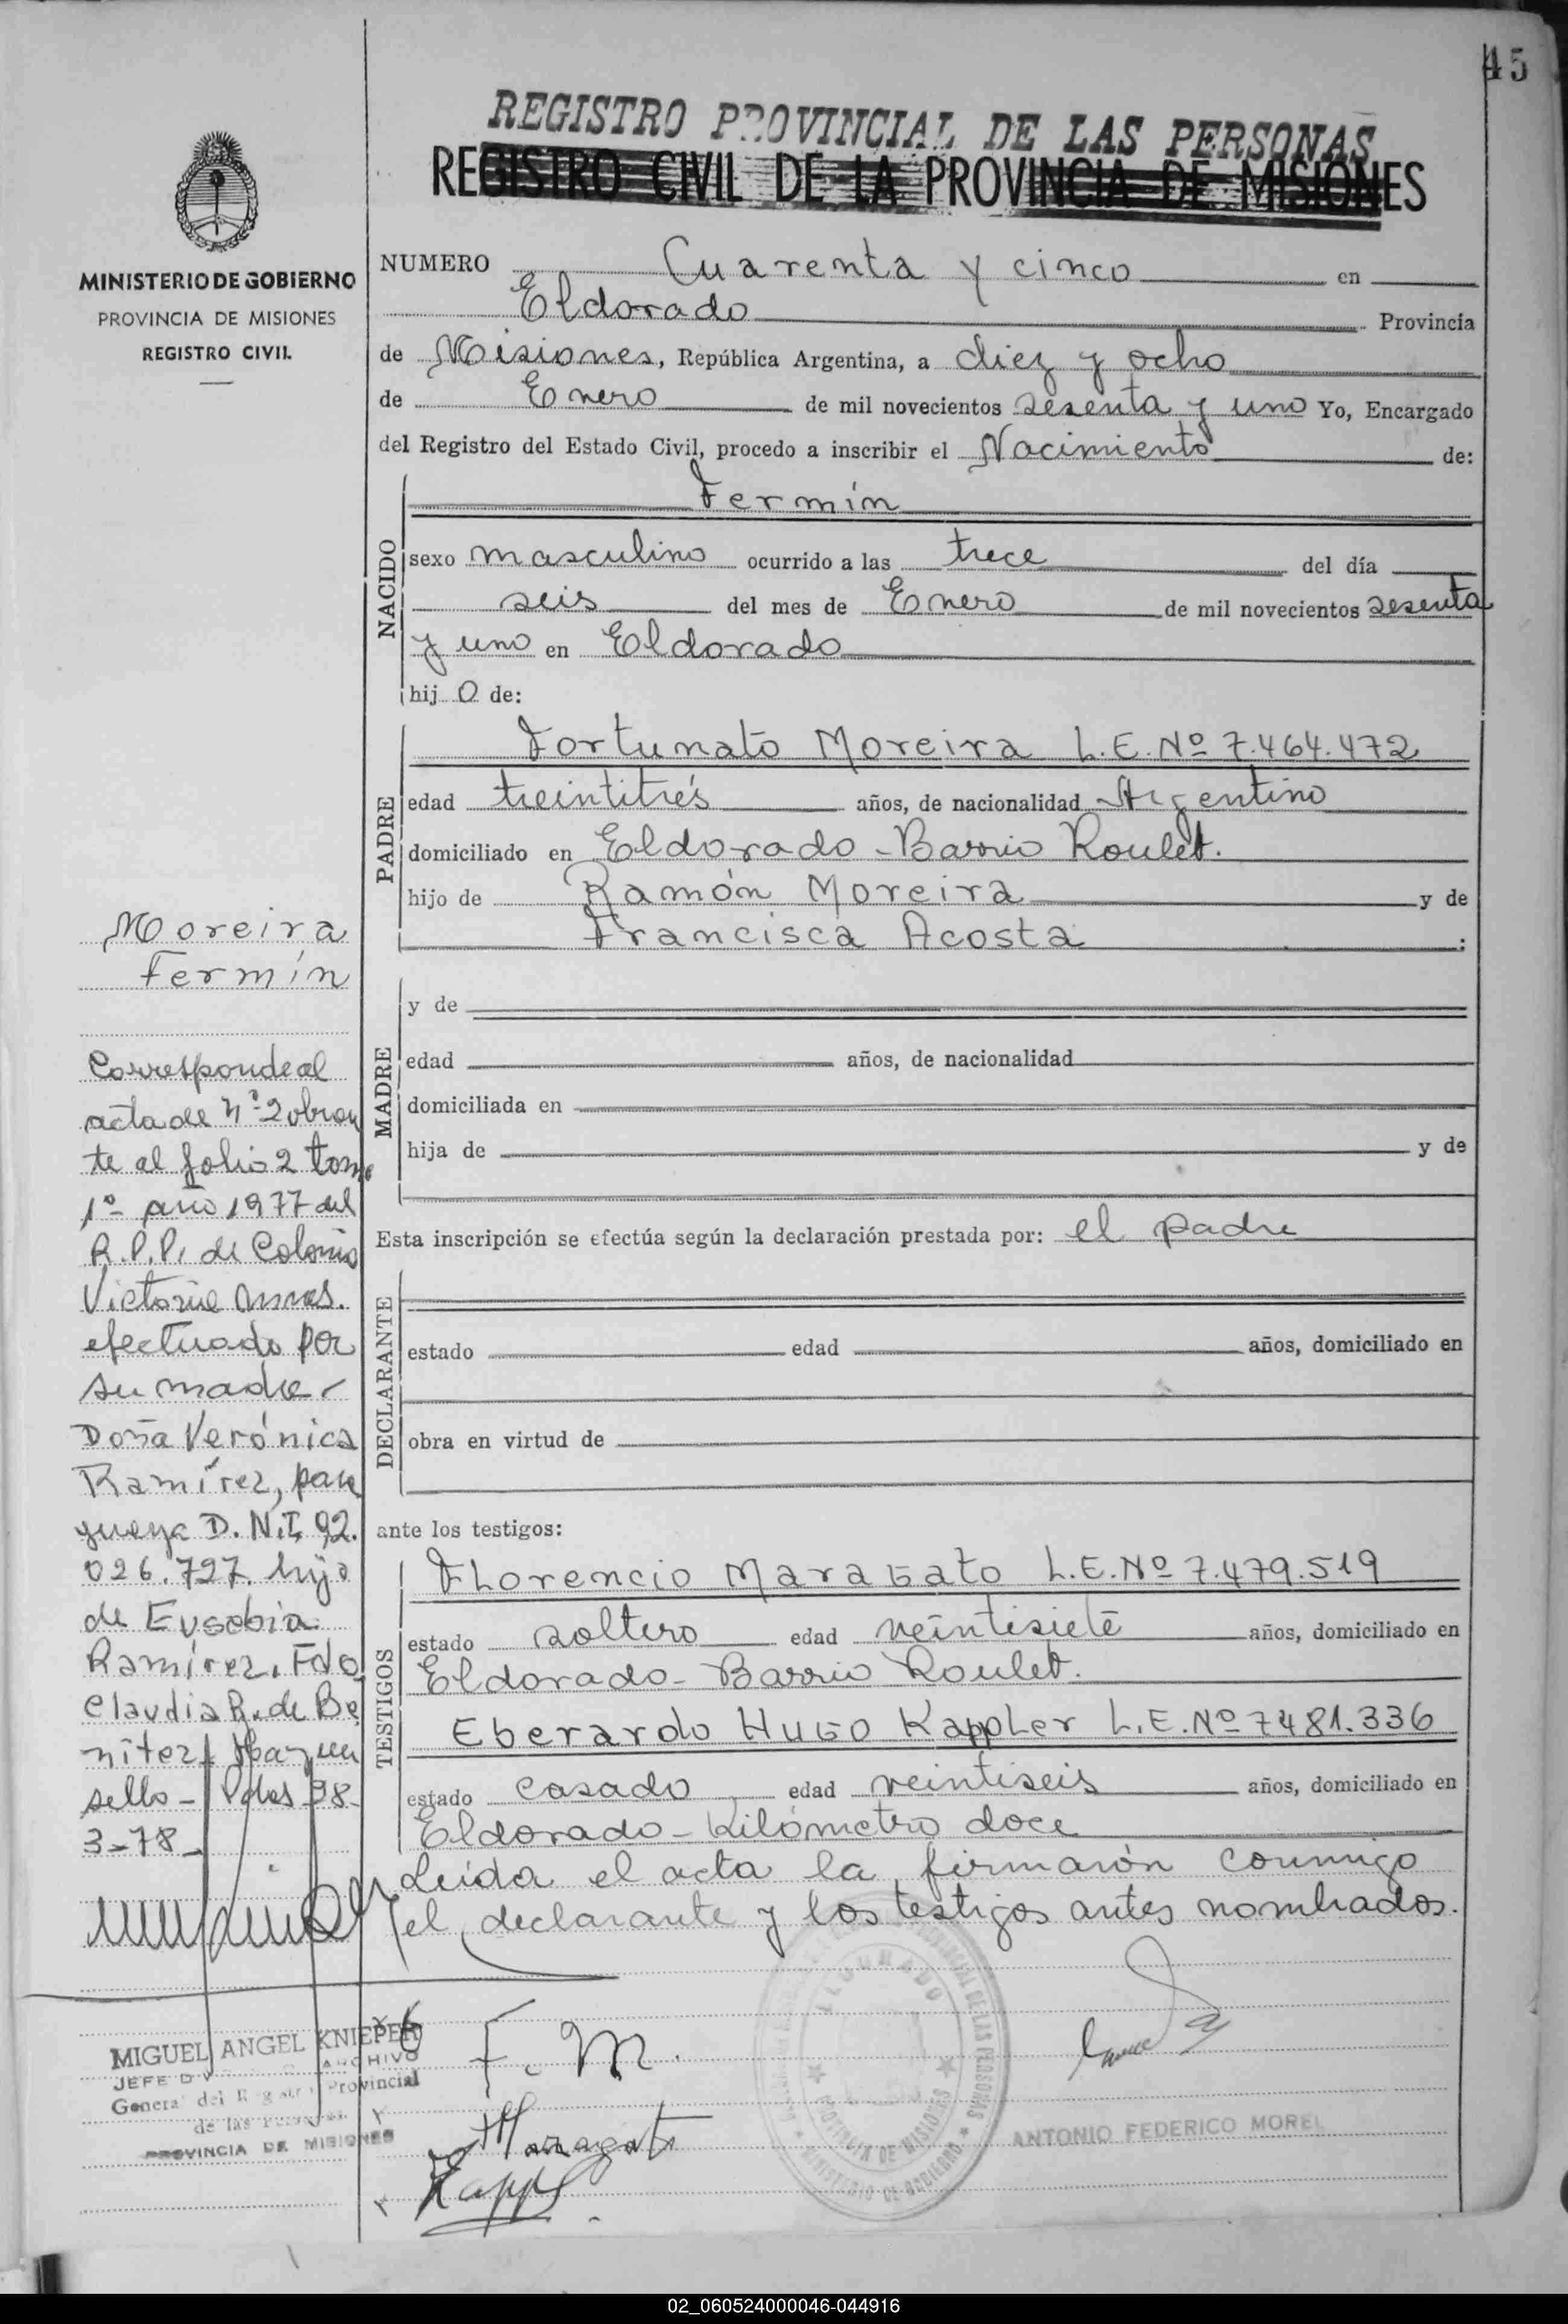 45
REGISTRO PROVINCIAL DE LAS PERSONAS
REGISTRO CIVIL DE LA PROVINCIA DE MISIONES
MINISTERIO DE GOBIERNO
PROVINCIA DE MISIONES
REGISTRO CIVIL
NUMERO Cuarenta y cinco en
Eldorado Provincia
de Misiones, República Argentina, a diez y ocho
de Enero de mil novecientos sesenta y uno Yo, Encargado
del Registro del Estado Civil, procedo a inscribir el Nacimiento de:
NACIDO
Fermín
sexo masculino ocurrido a las trece del día
seis del mes de Enero de mil novecientos sesenta
y uno en Eldorado
hij o de:
PADRE
Fortunato Moreira L.E. Nº 7.464.472
edad treintitrés años, de nacionalidad Argentino
domiciliado en Eldorado - Barrio Roulet.
hijo de Ramón Moreira y de
Francisca Acosta :
MADRE
y de
edad años, de nacionalidad
domiciliada en
hija de y de
Esta inscripción se efectúa según la declaración prestada por: el padre
DECLARANTE
estado edad años, domiciliado en
obra en virtud de
ante los testigos:
TESTIGOS
Florencio Maragato L.E. Nº 7.479.519
estado soltero edad veintisiete años, domiciliado en
Eldorado - Barrio Roulet.
Eberardo Hugo Kappler L.E. Nº 7481.336
estado casado edad veintiseis años, domiciliado en
Eldorado - Kilómetro doce
Leída el acta la firmarón conmigo
el declarante y los testigos antes nombrados.
Moreira
Fermín
Corresponde al
acta de nº 2 obran
te al folio 2 tomo
1º año 1977 del
R.P.P. de Colonia
Victoria
efectuado por
su madre -
Doña Verónica
Ramírez, para
guaya D.N.I. 92.
026.727. hija
de Eusebia
Ramírez. Fdo
Claudia R. de Be
nitez. Hay un
sello - Pdas 28-
3-78-
MIGUEL ANGEL KNIEPER
JEFE ARCHIVO
General del Registro Provincial
de las Personas
PROVINCIA DE MISIONES
F. M.
Maragato
Kapp
ELDORADO
PROVINCIA DE MISIONES
MINISTERIO DE GOBIERNO
PROVINCIAL DE LAS PERSONAS
ANTONIO FEDERICO MOREL
02_060524000046-044916